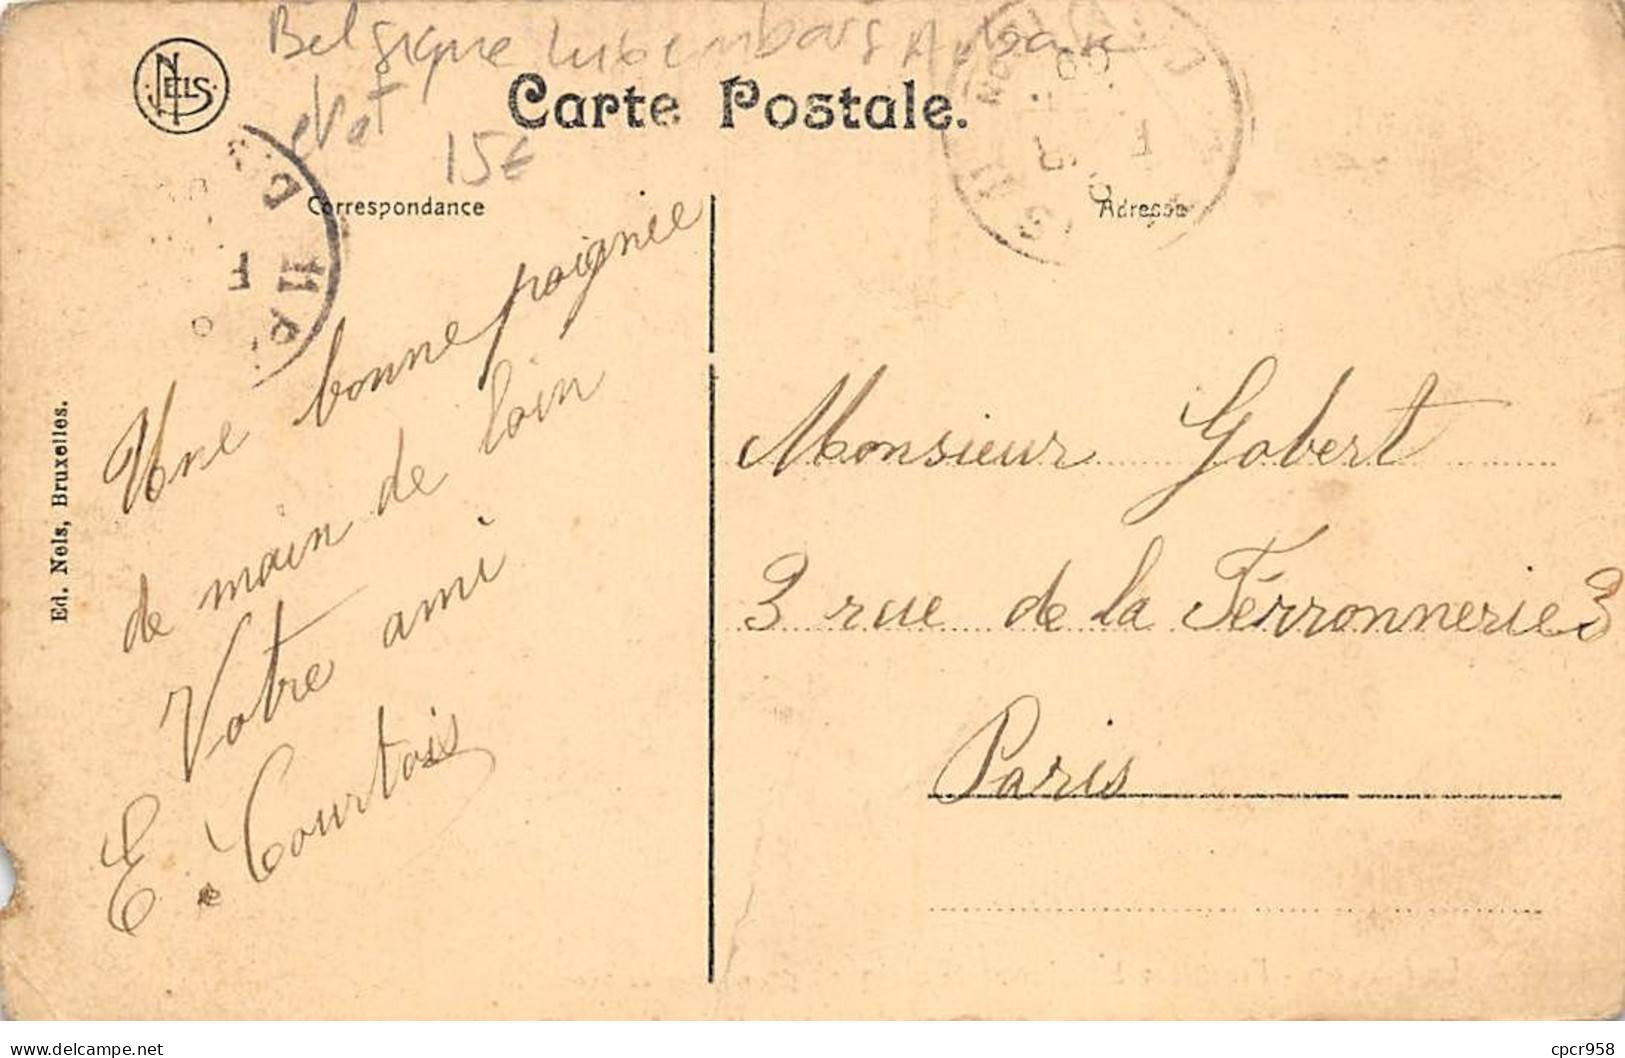 Belgique Luxembourg Arlon
état
15€
NELS
Carte Postale.
Correspondance
Adresse
Une bonne poignée
de main de loin
Votre ami
E. Courtois
Monsieur Gobert
3 rue de la Férronnerie 3
Paris
Ed. Nels, Bruxelles.
delcampe.net
cpcr958